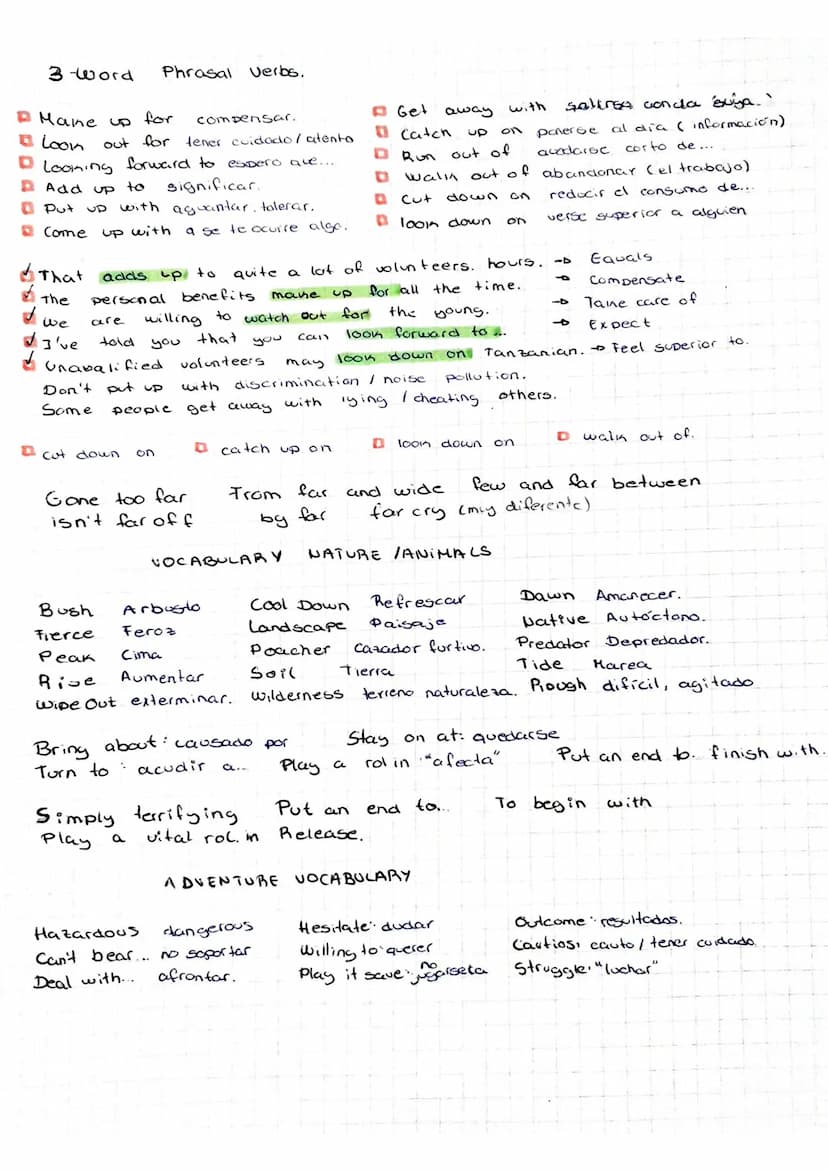 3-Word Phrasal Verbs.
Make up for compensar.
Look out for tener cuidado/atento
Looking forward to espero que...
Add up to significar.
Put up with aguantar. tolerar.
Come up with a se te ocurre algo.
Get away with
Catch up on ponerse al día (información)
Run out of quedarse corto de...
Walk out of abandonar (el trabajo)
Cut down on reducir el consumo de...
look down on verse superior a alguien
That adds up to quite a lot of volunteers. hours. → Equals
The personal benefits make up for all the time. → Compensate
We are willing to watch out for the young. → Take care of
I've told you that you can look forward to... → Expect
Unqualified volunteers may look down on Tanzanian. → Feel superior to.
Don't put up with discrimination / noise pollution.
Some people get away with lying / cheating others.
cut down on catch up on look down on walk out of.
Gone too far From far and wide few and far between
isn't far off by far far cry (muy diferente)
VOCABULARY NATURE /ANIMALS
Bush Arbusto Cool Down Refrescar Dawn Amanecer.
Fierce Feroz Landscape Paisaje Native Autóctono.
Peak Cima Poacher Cazador furtivo. Predator Depredador.
Rise Aumentar Soil Tierra Tide Marea
Wipe Out exterminar. Wilderness terreno naturaleza. Rough difícil, agitado
Bring about: causado por Stay on at: quedarse
Turn to: acudir a... Play a rol in "afecta" Put an end to. finish with.
Simply terrifying Put an end to... To begin with
Play a vital rol. in Release.
ADVENTURE VOCABULARY
Hazardous dangerous Hesitate: dudar Outcome: resultados.
Can't bear... no soportar Willing to: querer Cautios: cauto / tener cuidado.
Deal with... afrontar. Play it save: no jugarsela Struggle: "luchar"